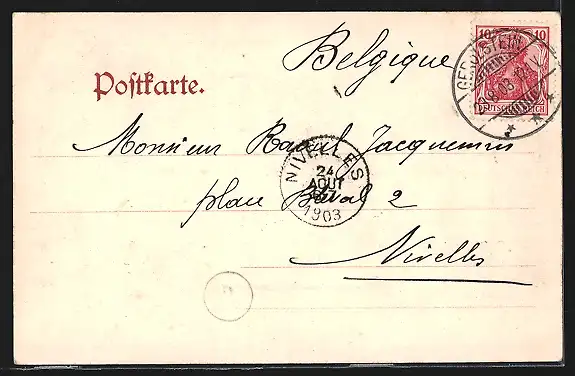 Belgique
10 10
DEUTSCHES REICH
GEROLSTEIN
8.03
Postkarte.
Monsieur Raoul Jacquemin
NIVELLES
24
AOUT
1903
place 2
Nivelles